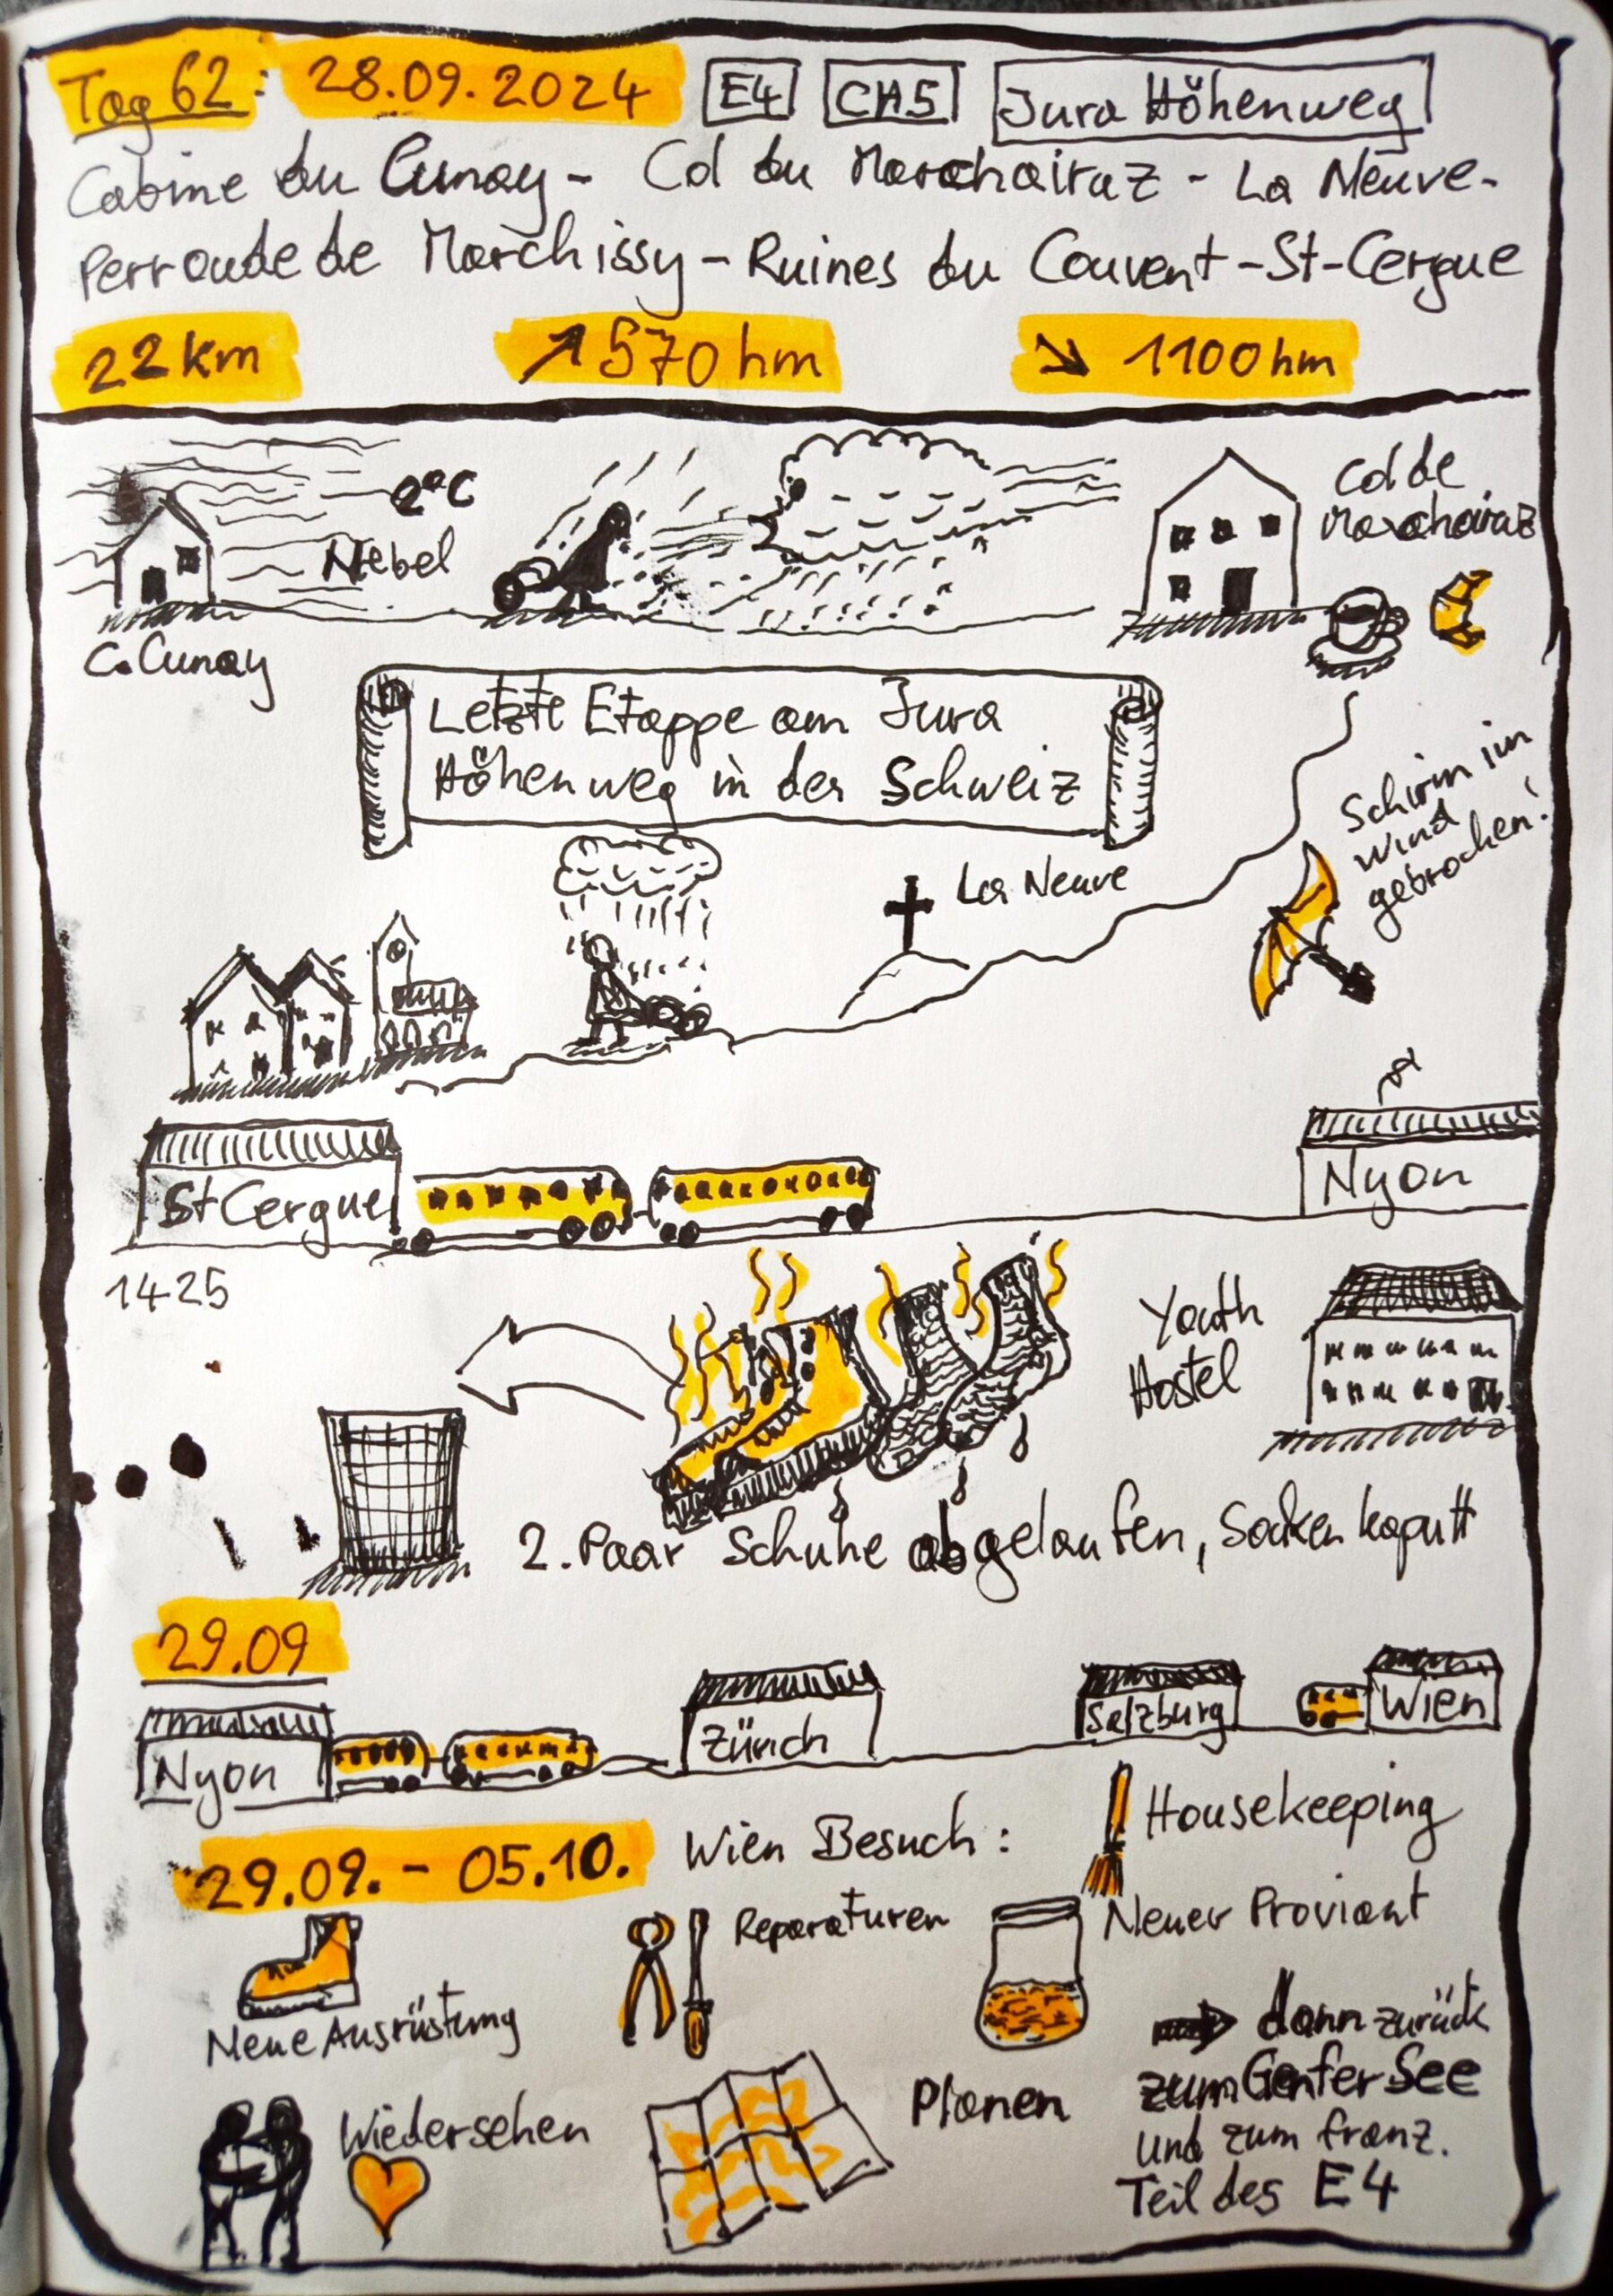 Tag 62: 28.09.2024 E4 CH5 Jura Höhenweg
Cabine du Cunay - Col du Marchairuz - La Neuve -
Perroude de Marchissy - Ruines du Couvent - St-Cergue
22 km ↗ 570 hm ↘ 1100 hm
2°C
Nebel
C. Cunay
Col de
Marchairuz
Letzte Etappe am Jura
Höhenweg in der Schweiz
Schirm im
Wind
gebrochen!
La Neuve
St Cergue
Nyon
1425
Youth
Hostel
2. Paar Schuhe abgelaufen, Socken kaputt
29.09
Nyon
Zürich
Salzburg
Wien
29.09. - 05.10. Wien Besuch:
Housekeeping
Reparaturen
Neuer Proviant
Neue Ausrüstung
Wiedersehen
Planen
⇒ dann zurück
zum Genfer See
und zum franz.
Teil des E4